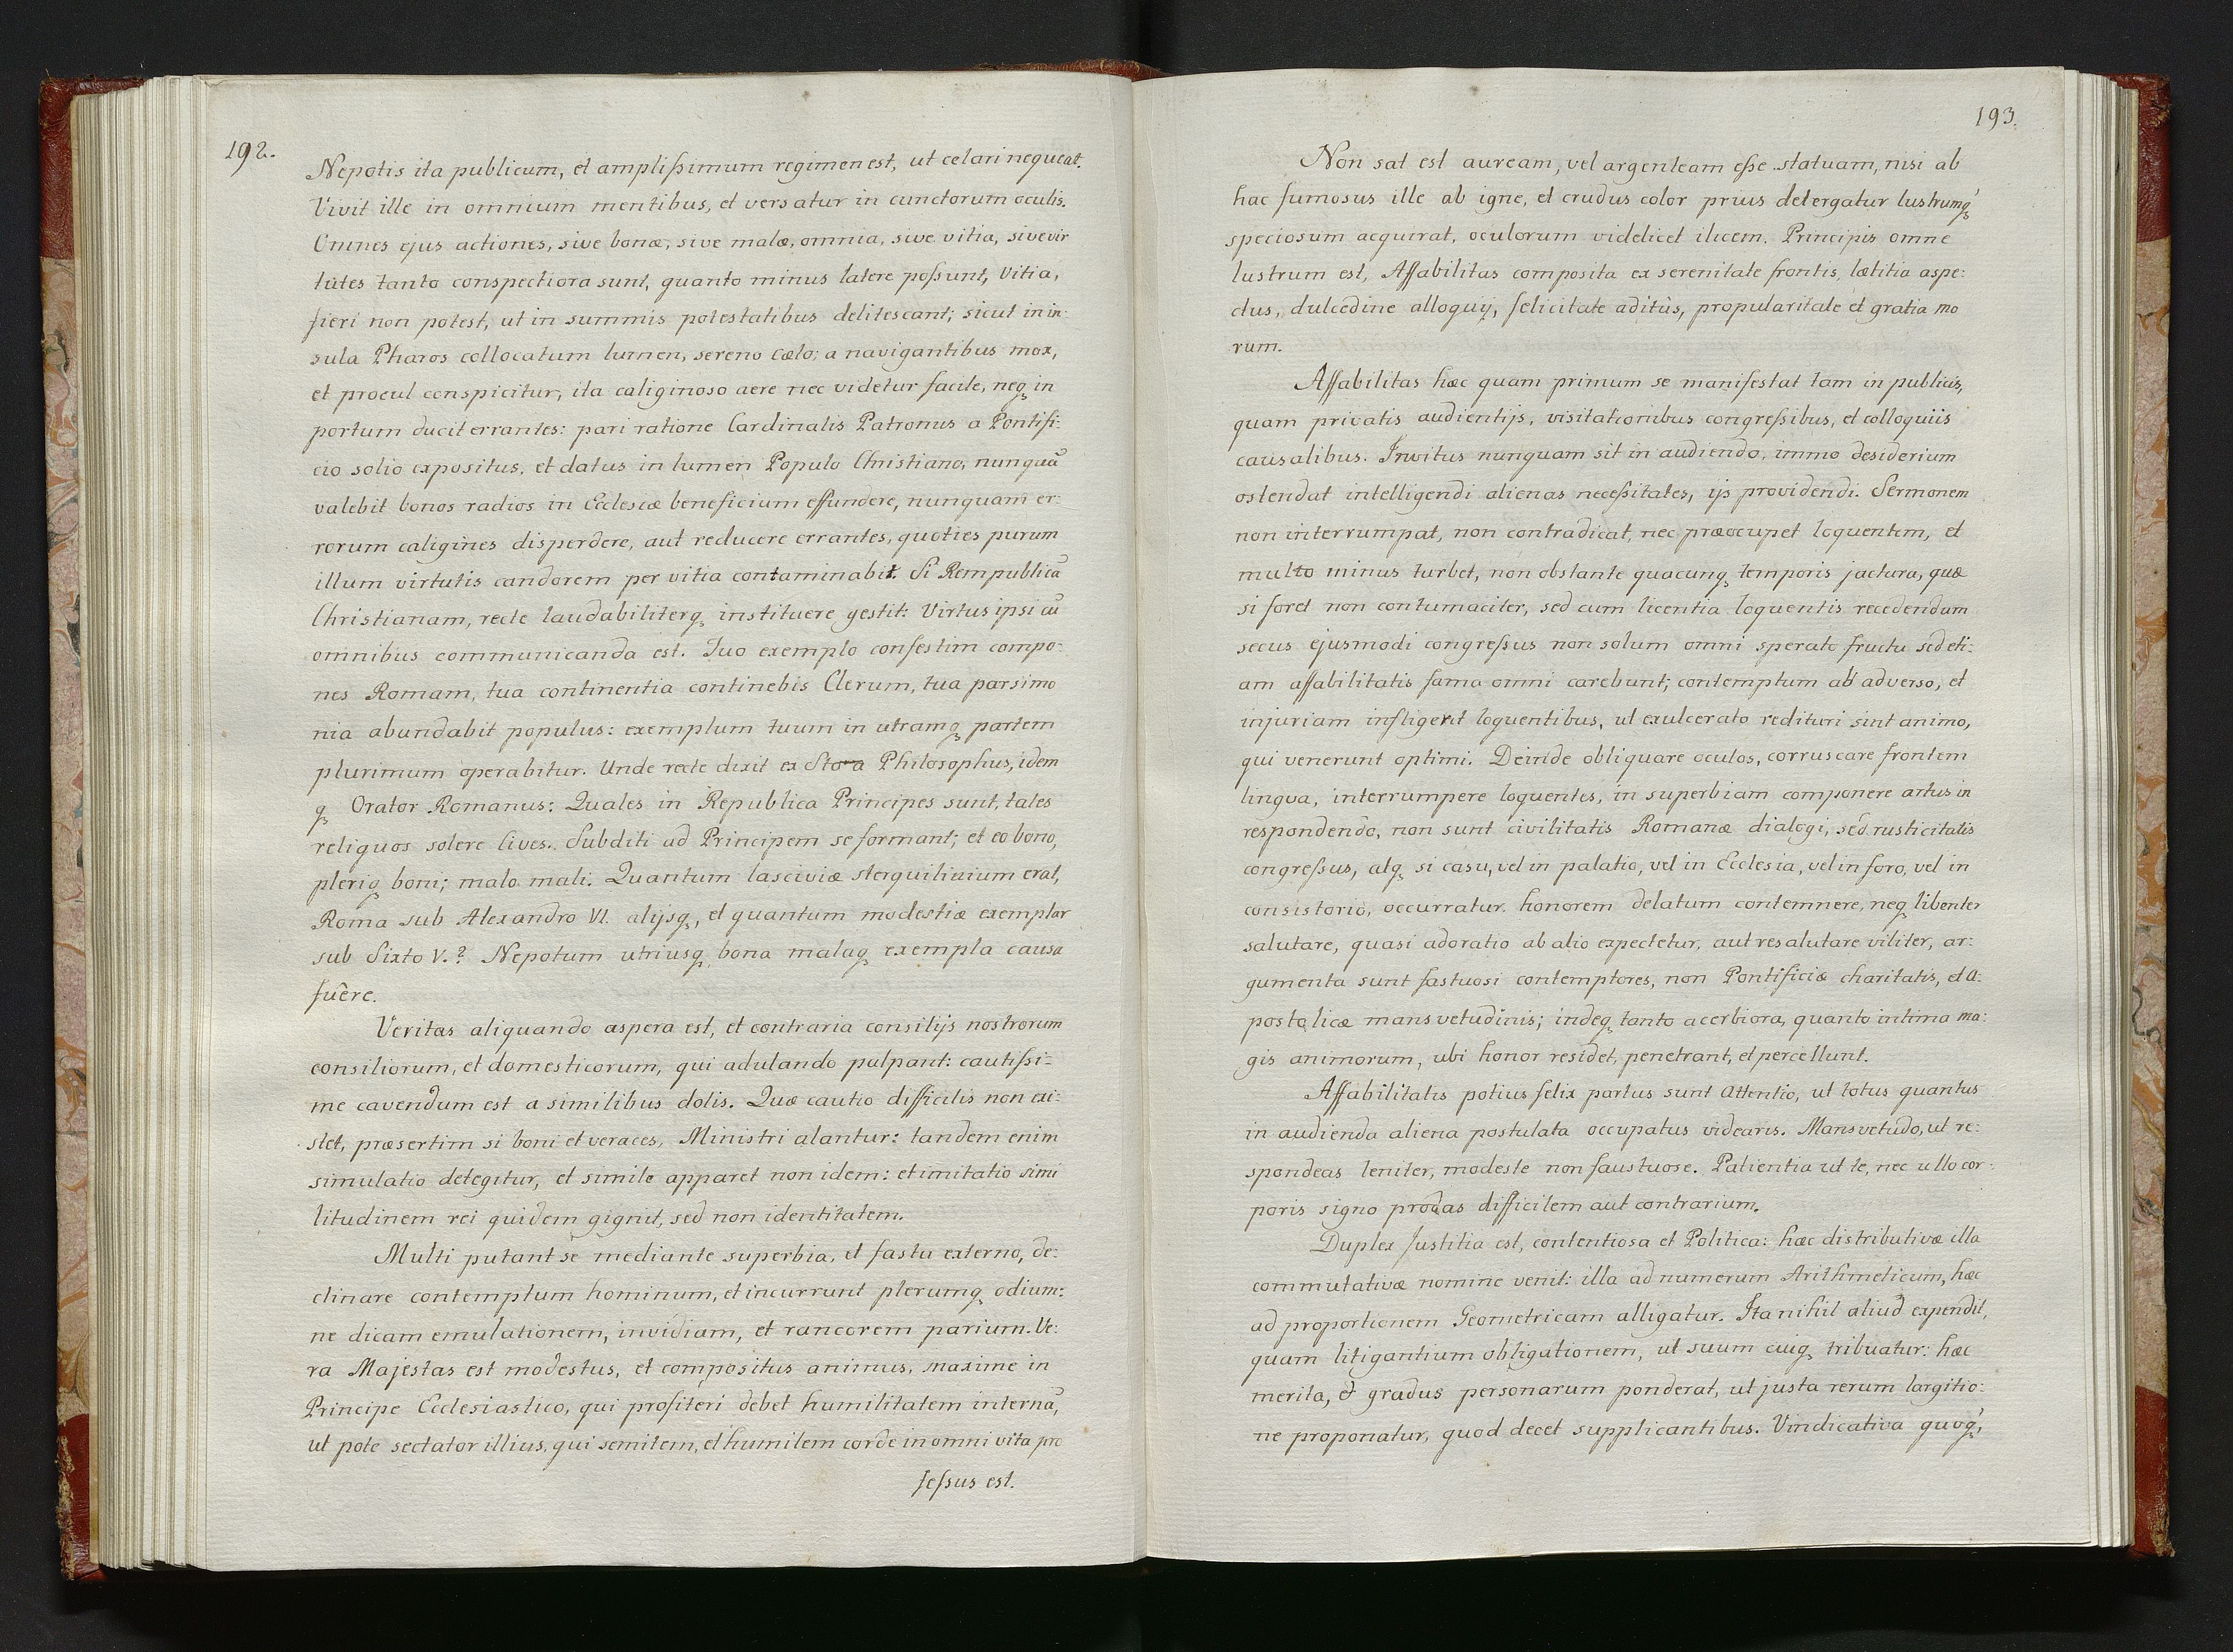 192.
Nepotis ita publicum, et amplissimum regimen est, ut celari nequeat.
Vivit ille in omnium mentibus, et versatur in cunctorum oculis.
Omnes ejus actiones, sive bonæ, sive malæ, omnia, sive vitia, sive vir
tutes tanto conspectiora sunt, quanto minus latere possunt, vitia,
fieri non potest, ut in summis potestatibus delitescant; sicut in in:
sula Pharos collocatum lumen, sereno cælo; a navigantibus mox,
et procul conspicitur, ita caliginoso aere nec videtur facile, neq in
portum ducit errantes: pari ratione Cardinalis Patronus a Pontifi:
cio solio expositus, et datus in lumen Populo Christiano; nunquā
valebit bonos radios in Ecclesiæ beneficium effundere, nunquam er:
rorum caligines disperdere, aut reducere errantes, quoties purum
illum virtutis candorem per vitia contaminabit. Si Rempublicā
Christianam, recte laudabiliterq instituere gestit: Virtus ipsi cū
omnibus communicanda est. Tuo exemplo confestim compo:
nes Romam, tua continentia continebis Clerum, tua parsimo
nia abundabit populus: exemplum tuum in utramq partem
plurimum operabitur. Unde recte dixit ex Stoa Philosophus, idem
q Orator Romanus: Quales in Republica Principes sunt, tales
reliquos solere Cives. Subditi ad Principem se formant; et eo bono,
pleriq boni; malo mali. Quantum lasciviæ sterquilinium erat,
Roma sub Alexandro VI. alijsq, et quantum modestiæ exemplar
sub Sixto V.? Nepotum utriusq bona malaq exempla causa
fuêre.
Veritas aliquando aspera est, et contraria consilijs nostrorum
consiliorum, et domesticorum, qui adulando palpant: cautissi:
me cavendum est a similibus dolis. Quæ cautio difficilis non exi:
stet, præsertim si boni et veraces, Ministri alantur: tandem enim
simulatio detegitur, et simile apparet non idem: et imitatio simi
litudinem rei quidem gignit, sed non identitatem.
Multi putant se mediante superbia, et fastu externo, de:
clinare contemptum hominum, et incurrunt plerumq odium:
ne dicam emulationem, invidiam, et rancorem parium. Ve:
ra Majestas est modestus, et compositus animus, maxime in
Principe Ecclesiastico, qui profiteri debet humilitatem internā,
ut pote sectator illius, qui semitem, et humilem corde in omni vita pro
fessus est.
193.
Non sat est auream, vel argenteam esse statuam, nisi ab
hac fumosus ille ab igne, et crudus color prius detergatur lustrumq
speciosum acquirat, oculorum videlicet ilicem. Principis omne
lustrum est, Affabilitas composita ex serenitate frontis, lætitia aspe:
ctus, dulcedine alloquij, felicitate aditûs, propularitate et gratia mo
rum.
Affabilitas hæc quam primum se manifestat tam in publicis,
quam privatis audientijs, visitationibus congressibus, et colloquiis
causalibus. Invitus nunquam sit in audiendo, immo desiderium
ostendat intelligendi alienas necessitates, ijs providendi. Sermonem
non interrumpat, non contradicat, nec præocupet loquentem, et
multo minus turbet, non obstante quacunq temporis jactura, quæ
si foret non contumaciter, sed cum licentia loquentis recedendum
secus ejusmodi congressus non solum omni sperato fructu sed eti:
am affabilitatis fama omni carebunt; contemptum ab adverso, et
injuriam infligent loquentibus, ut exulcerato redituri sint animo,
qui venerunt optimi. Deinde obliquare oculos, corruscare frontem
lingva, interrumpere loquentes, in superbiam componere artus in
respondendo, non sunt civilitatis Romanæ dialogi, sed rusticitatis
congressus, atq si casu, vel in palatio, vel in Ecclesia, vel in foro, vel in
consistorio, occurratur. honorem delatum contemnere, neq libenter
salutare, quasi adoratio ab alio expectetur, aut resalutare viliter, ar:
gumenta sunt fastuosi contemptores, non Pontificiæ charitatis, et a:
postolicæ mansvetudinis; indeq tanto acerbiora, quanto intima ma:
gis animorum, ubi honor residet, penetrant, et percellunt.
Affabilitatis potius felix partus sunt Attentio, ut totus quantus
in audienda aliena postulata occupatus videaris. Mansvetudo, ut re:
spondeas leniter, modeste non faustuose. Patientia ut te, nec ullo cor:
poris signo prodas difficilem aut contrarium.
Duplex Justitia est, contentiosa et Politica: hæc distributivæ illa
commutativæ nomine venit: illa ad numerum Arithmeticum, hæc
ad proportionem Geometricam alligatur. Ita nihil aliud expendit,
quam litigantium obligationem, ut suum cuiq tribuatur: hæc
merita, & gradus personarum ponderat, ut justa rerum largitio:
ne proponatur, quod decet supplicantibus. Vindicativa quoq,